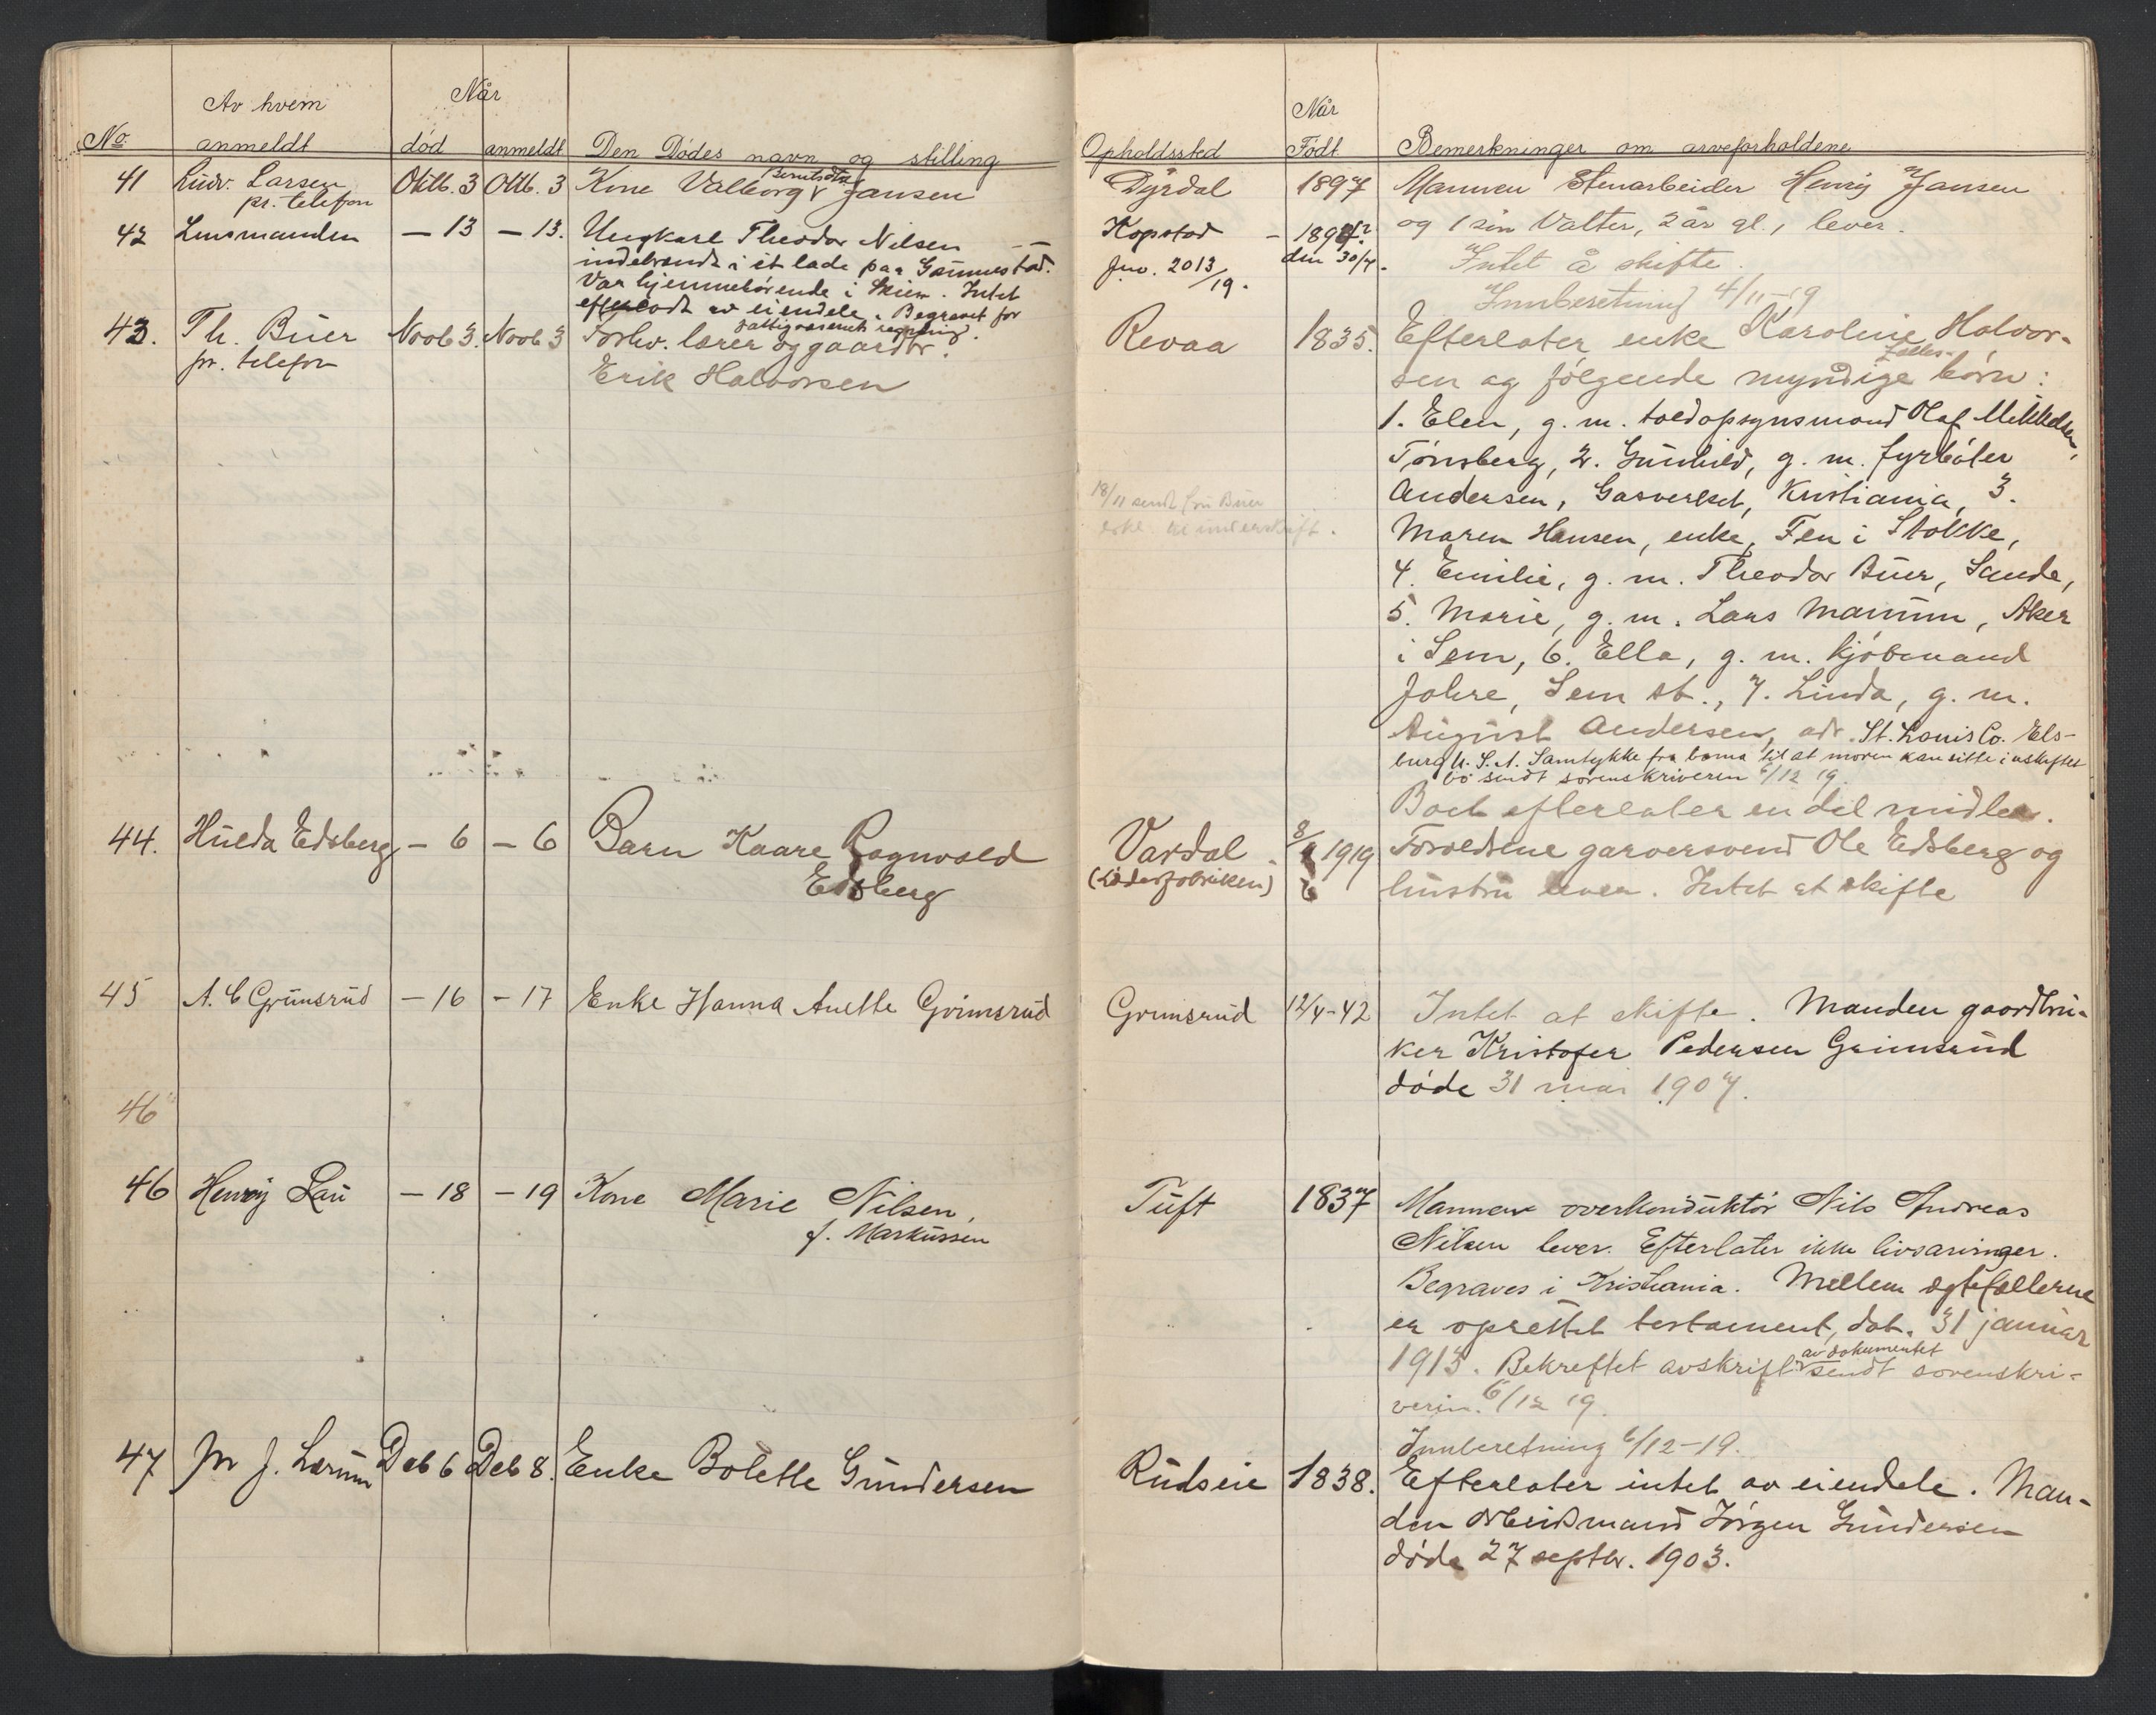 Av hvem
Når
No. anmeldt død anmeldt Den Dødes navn og stilling
41 Ludv. Larsen Oktb. 3 Oktb. 3 Kone Valborg Jansen
pr. telefon
42 Lensmanden — 13 — 13. Ungkarl Theodor Nilsen
indebrændt i et lade paa Gannestad.
Var hjemmehørende i Skien. Intet
efterladt av eiendele. Begravet for
fattigvæsenets regning.
43. Th. Buer Novb 3. Novb 3 Forhv. lærer og gaardbr.
pr. telefon
Erik Halvorsen
44. Hulda Edsberg — 6 — 6 Barn Kaare Ragnvald
Edsberg
45 A. C Grimsrud — 16 — 17 Enke Hanna Anette Grimsrud
46
46 Henrij Lau — 18 — 19 Kone Marie Nilsen,
f. Markussen
47 J. Lærum Deb 6 Deb 8. Enke Bolette Gundersen
Når
Opholdssted Født Bemerkninger om arveforholdene
Dyrdal 1897 Mannen Stenarbeider Henrij Jansen
og 1 søn Valter, 2 år gl., lever.
Kopstad
Jnv. 2013/19.
den 30/4.
Intet å skifte.
Innberetning 4/11-19
Revaa 1835. Efterlater enke Karoline Halvor-
sen og følgende myndige fælles- børn:
1. Elen, g. m. toldopsynsmand Olaf Mikkelsen,
Tønsberg, 2. Gunhild, g. m. fyrbøter
Andersen, Gasverket, Kristiania, 3.
Maren Hansen, enke, Fen i Stokke,
4. Emilie, g. m. Theodor Buer, Sande,
5. Marie, g. m. Lars Manum, Aker
i Sem, 6. Ella, g. m. kjøbmand
Jahre, Sem st., 7. Linda, g. m.
August Andersen, adr. St. Louis Co. Els-
burg U. S. A. Samtykke fra barna til at moren kan sitte i uskiftet
bo sendt sorenskriveren 6/12 19.
Boet efterlater en del midler.
18/11 sendt fru Buer
erkl. til underskrift.
Vardal 8/6 1919 Foreldrene garversvend Ole Edsberg og
(Læderfabriken) hustru lever. Intet at skifte
Grimsrud 12/4-42 Intet at skifte. Manden gaardbru-
ker Kristofer Pedersen Grimsrud
døde 31 mai 1907.
Tuft 1837 Mannen overkonduktør Nils Andreas
Nilsen lever. Efterlater ikke livsarvinger.
Begraves i Kristiania. Mellem egtefællerne
er oprettet testament, dat. 31 januar
1913. Bekreftet avskrift av dokumentet sendt sorenskri-
veren 6/12 19.
Innberetning 6/12-19.
Rudseie 1838. Efterlater intet av eiendele. Man-
den arbeidsmand Jørgen Gundersen
døde 27 septbr. 1903.